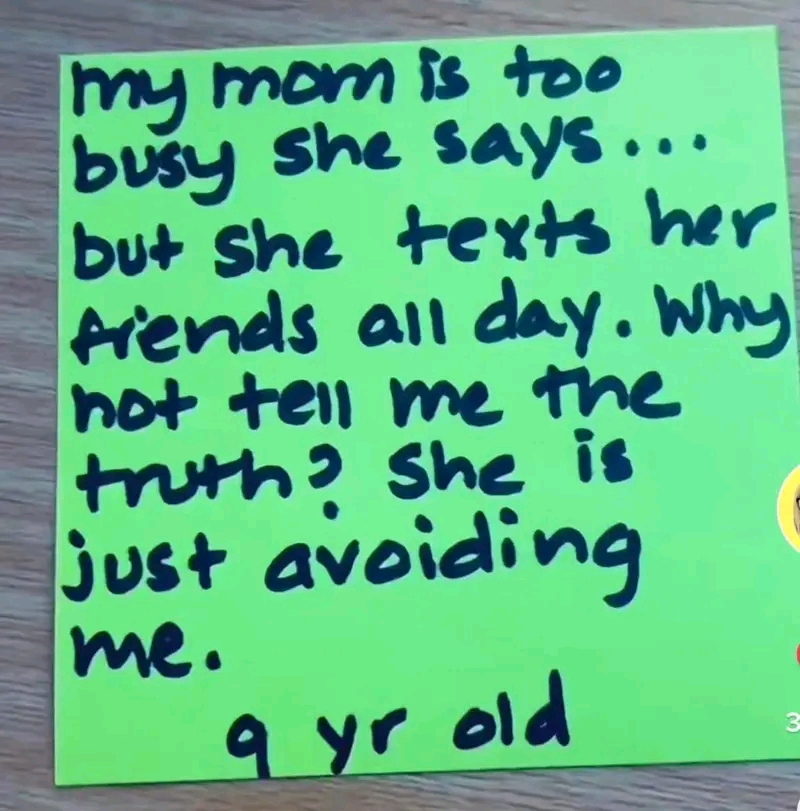 my mom is too
busy she says...
but she texts her
friends all day. Why
not tell me the
truth? She is
just avoiding
me.
9 yr old
3